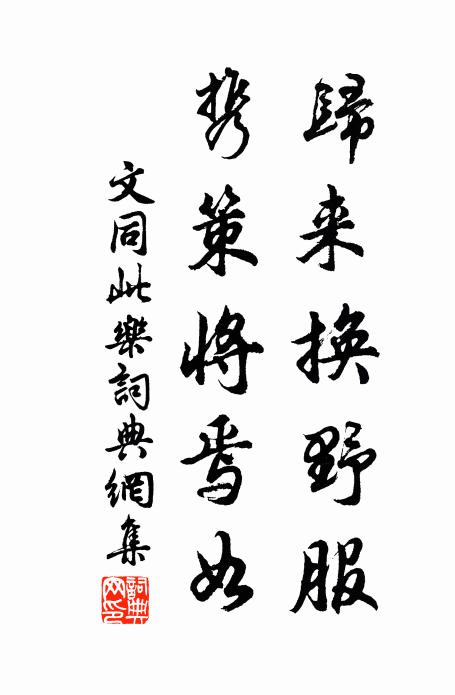 歸来換野服
携策將焉如
文同此樂詞典網集
詞典網印